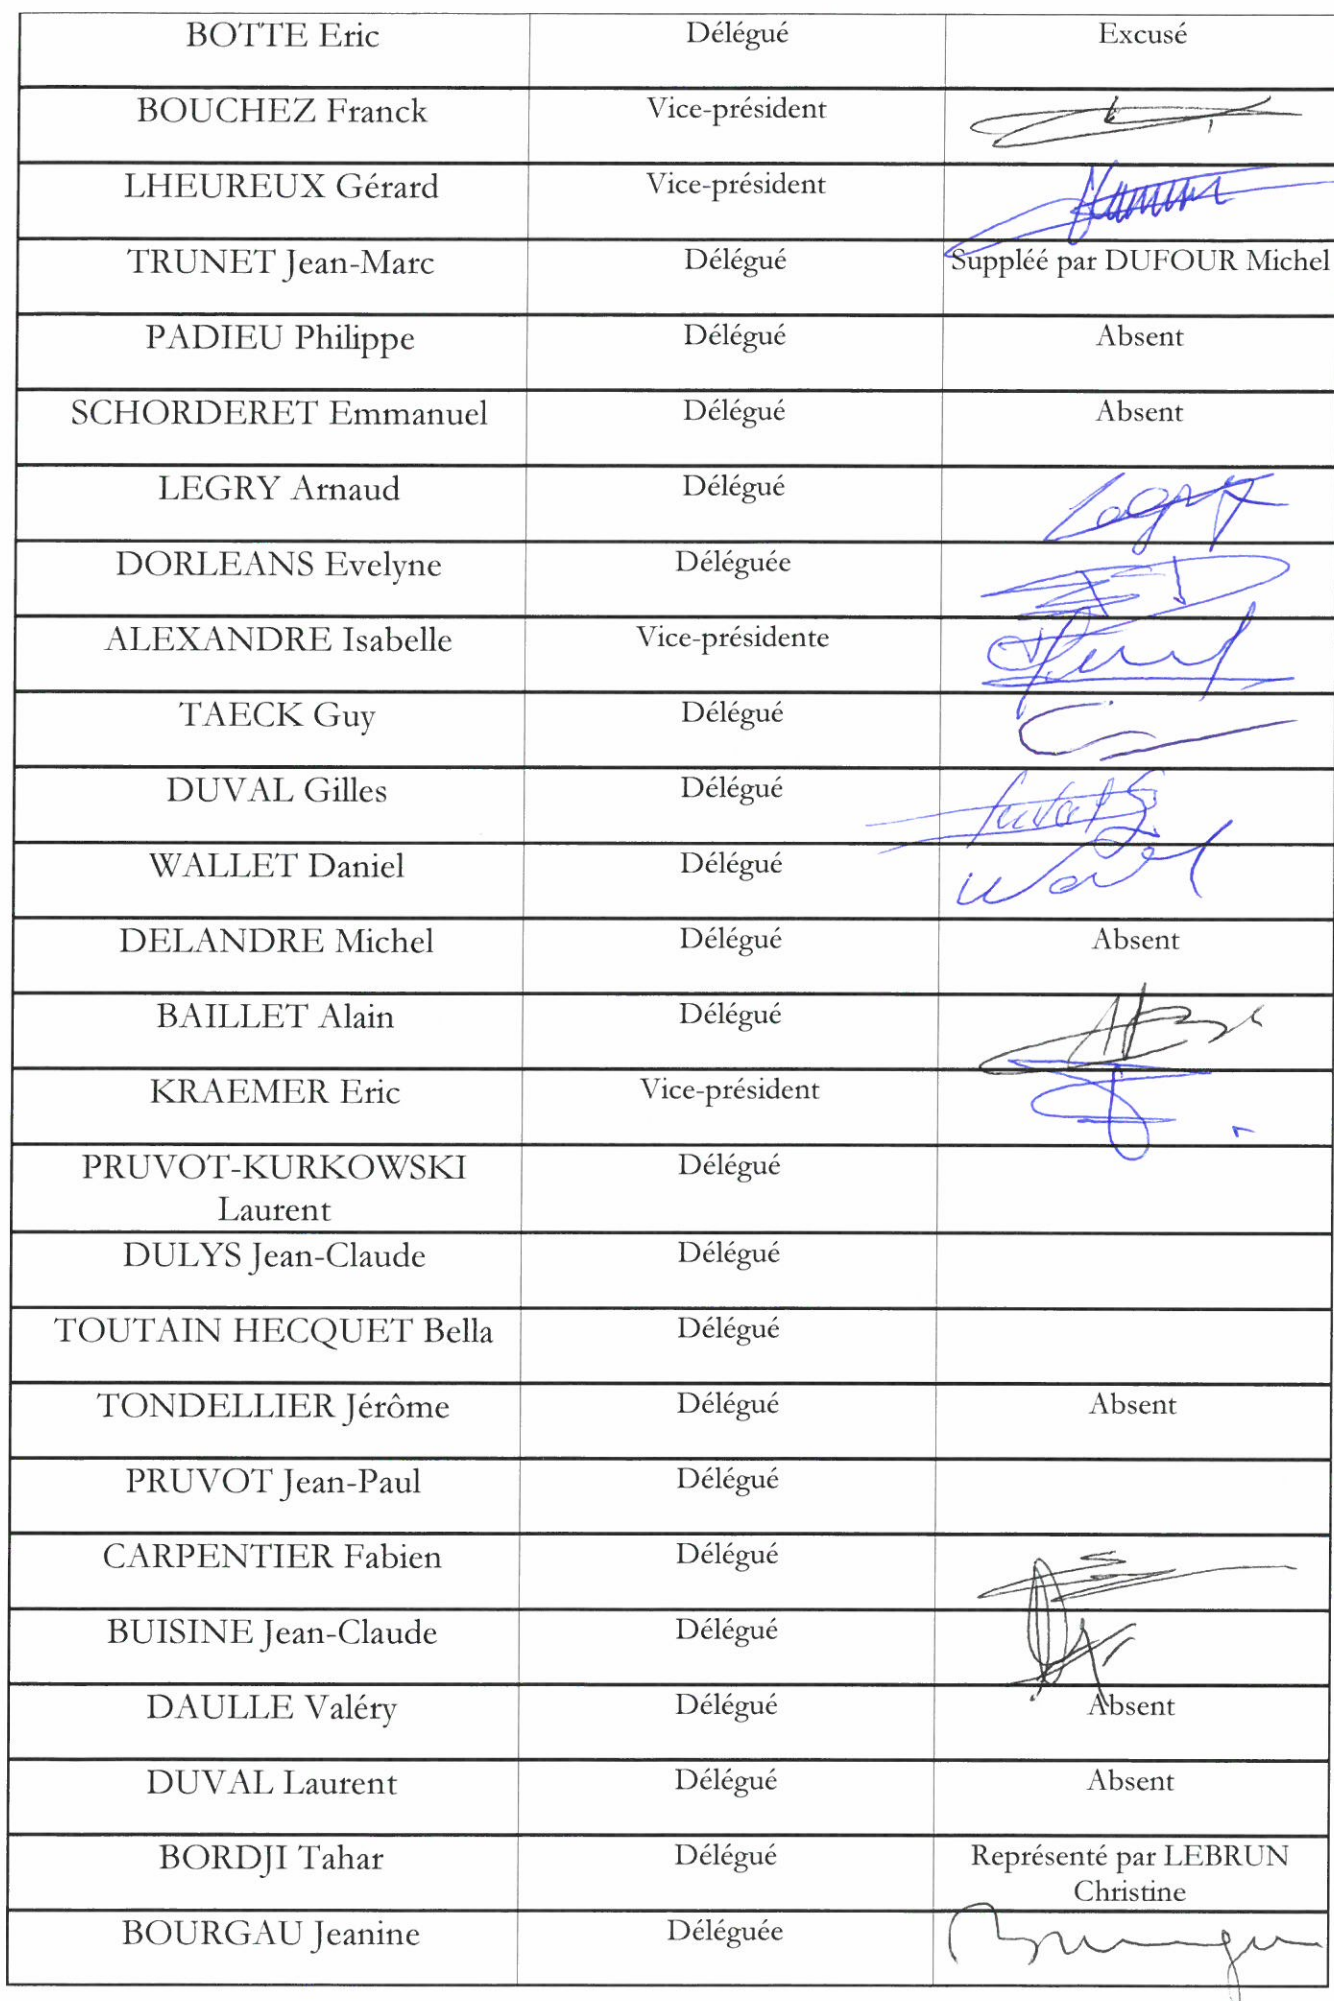 BOTTE Eric Délégué Excusé
BOUCHEZ Franck Vice-président
LHEUREUX Gérard Vice-président
TRUNET Jean-Marc Délégué Suppléé par DUFOUR Michel
PADIEU Philippe Délégué Absent
SCHORDERET Emmanuel Délégué Absent
LEGRY Arnaud Délégué Legry
DORLEANS Evelyne Déléguée
ALEXANDRE Isabelle Vice-présidente
TAECK Guy Délégué
DUVAL Gilles Délégué
WALLET Daniel Délégué
DELANDRE Michel Délégué Absent
BAILLET Alain Délégué
KRAEMER Eric Vice-président
PRUVOT-KURKOWSKI Délégué
Laurent
DULYS Jean-Claude Délégué
TOUTAIN HECQUET Bella Délégué
TONDELLIER Jérôme Délégué Absent
PRUVOT Jean-Paul Délégué
CARPENTIER Fabien Délégué
BUISINE Jean-Claude Délégué
DAULLE Valéry Délégué Absent
DUVAL Laurent Délégué Absent
BORDJI Tahar Délégué Représenté par LEBRUN
Christine
BOURGAU Jeanine Déléguée